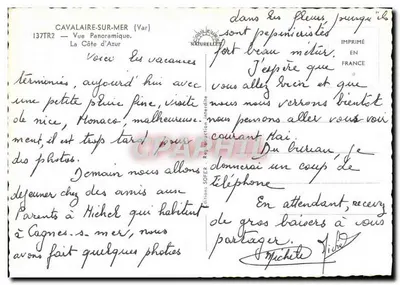 CAVALAIRE-SUR-MER (Var)
137TR2 - Vue Panoramique.
La Côte d'Azur
Voici les vacances
terminées, aujourd'hui avec
une petite pluie fine, visite
de nice, Monaco, malheureuse-
ment, il est trop tard pour
des photos.
Demain nous allons
dejeuner chez des amis aux
Parents à Michel qui habitent
à Cagnes-s-mer, nous
avons fait quelques photos
dans les fleurs, puisqu'ils
sont pepinieristes
fort beau métier.
J'espère que
vous allez bien et que
nous nous verrons bientot
nous pensons aller vous voir
courant Mai.
Du bureau, je
donnerai un coup de
téléphone
En attendant, recevez
de gros baisers à vous
partager.
Michèle Michel
NATURELLES
IMPRIMÉ
EN
FRANCE